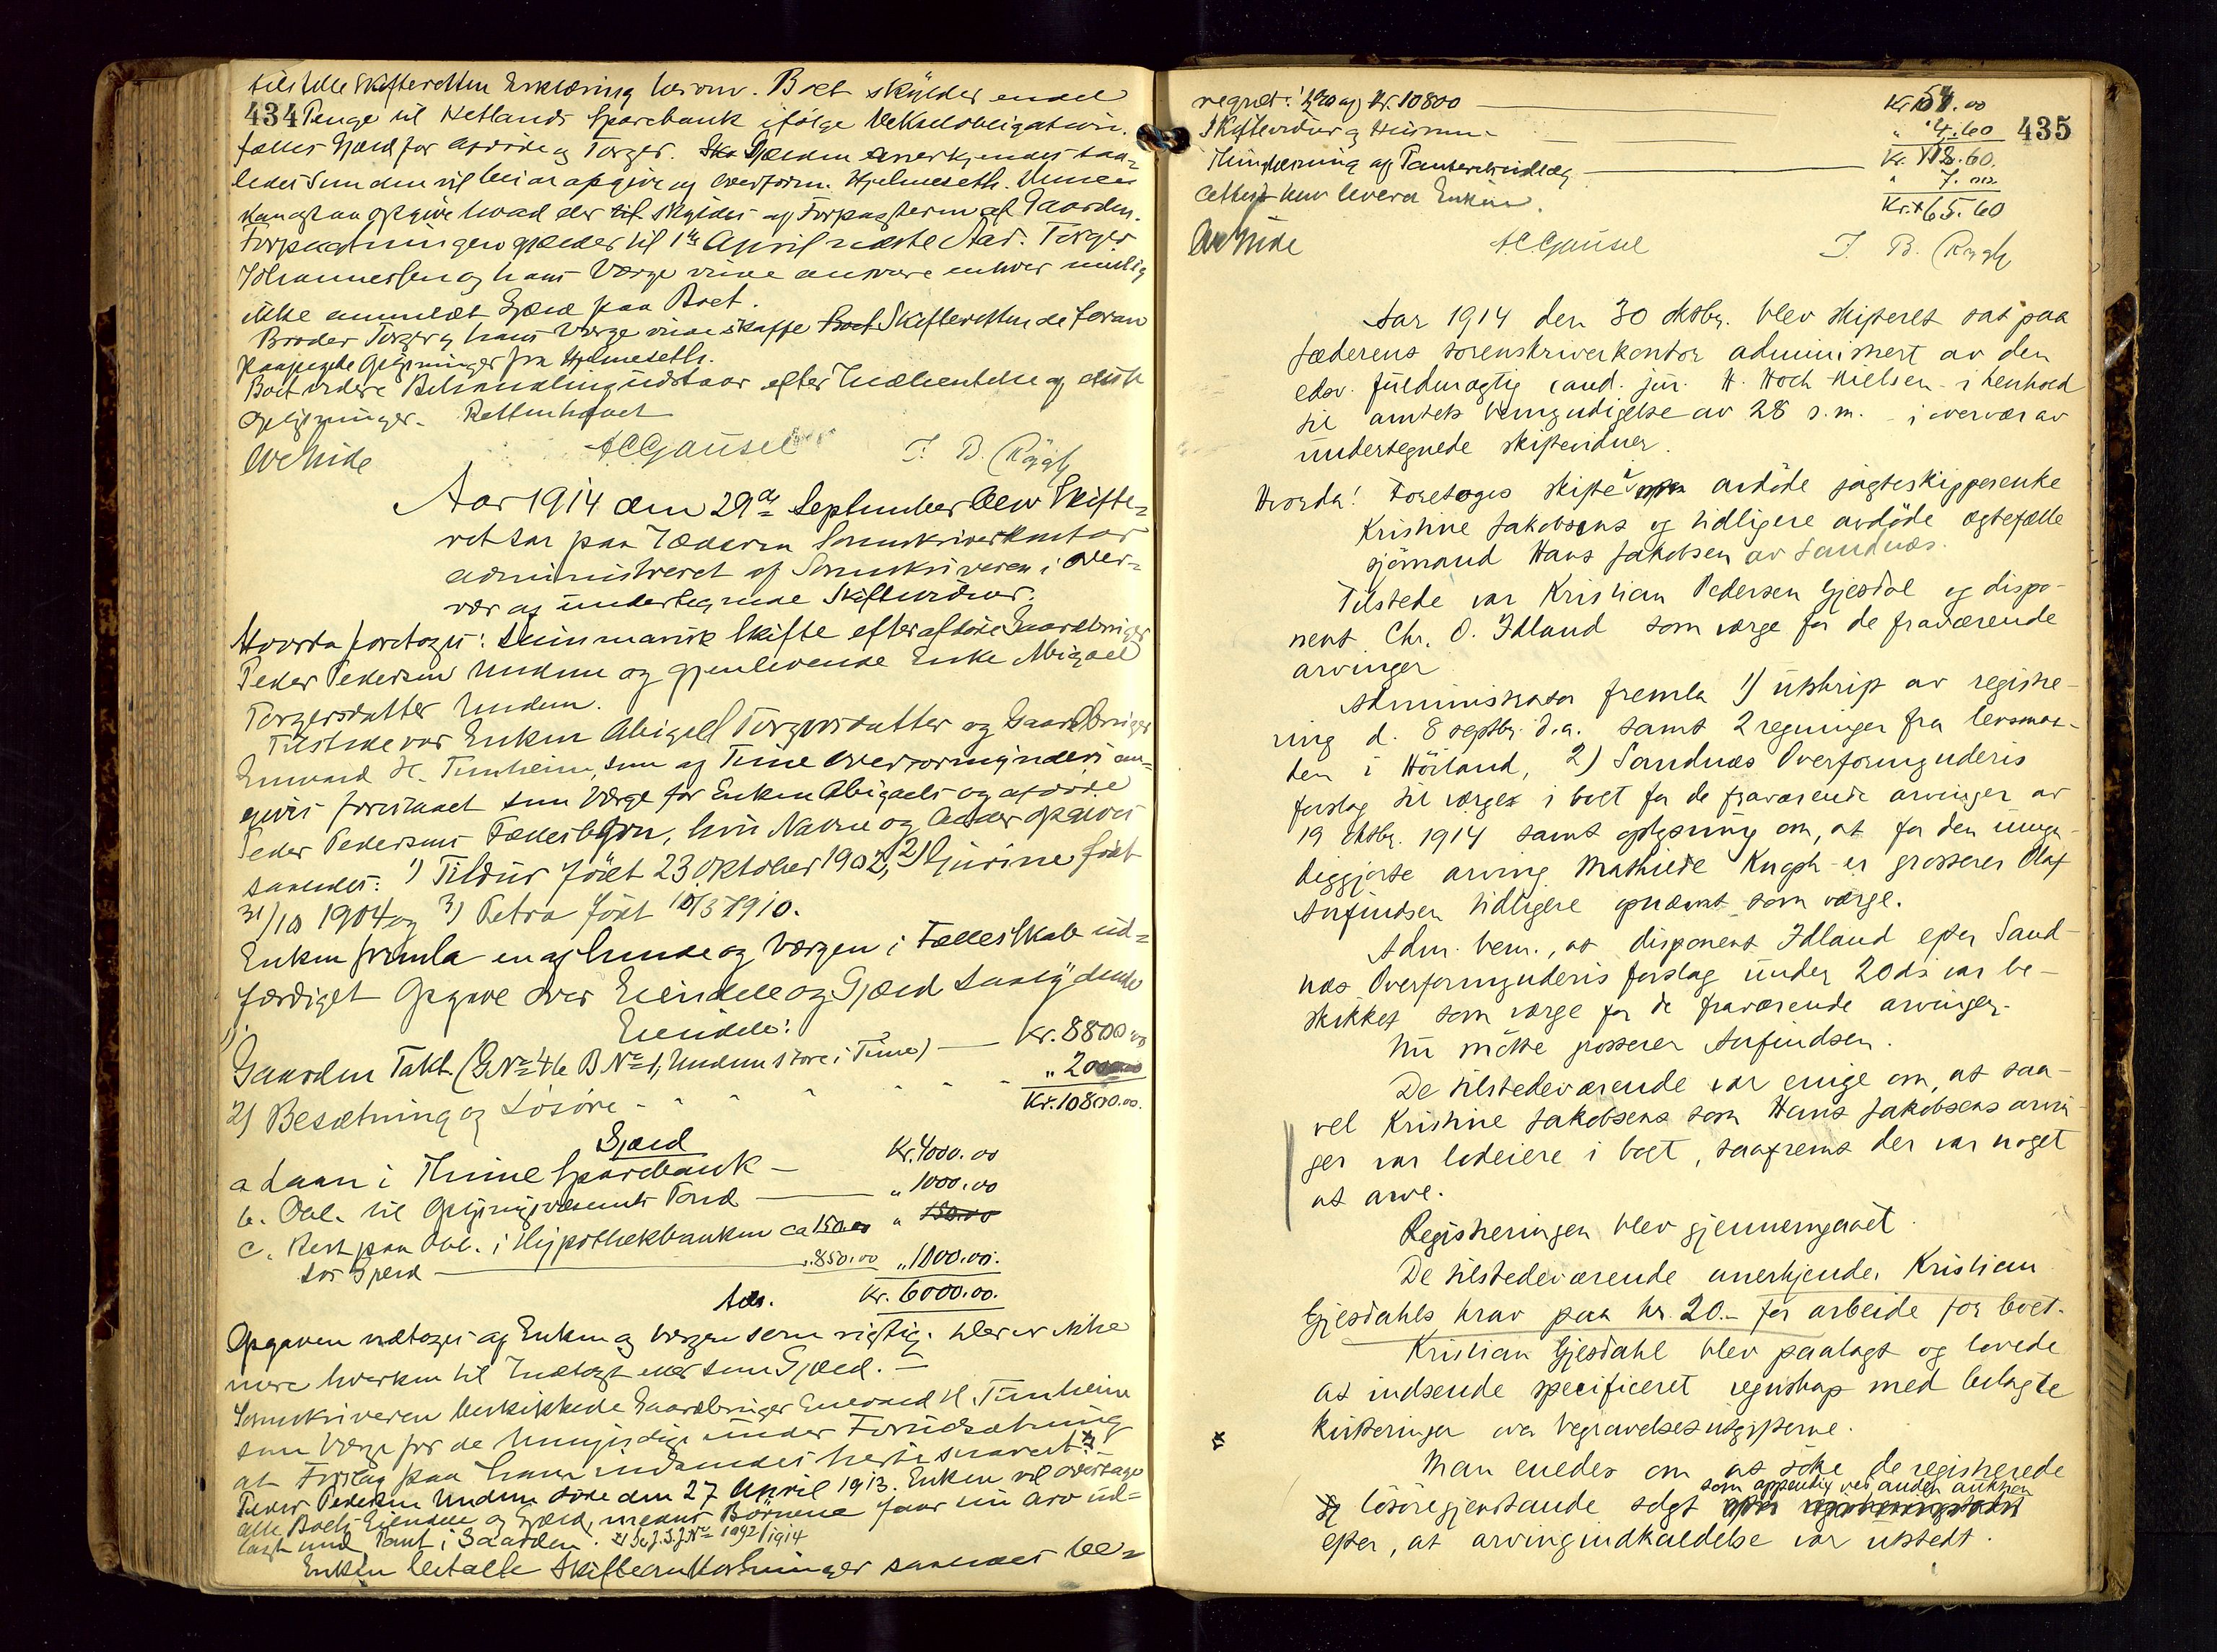 tilstille Skifteretten Erklæring herom. Boet skylder endel
434 Penge til Hetlands Sparebank ifølge Vekselobligation.
fælles Gjæld for afdøde og Torger. Gjælden anerkjendes saa-
ledes som den vil bli at opgjøre og overform. Hjelmeseth.
kan at opgive hvad der til skyldes af Forpagteren af Gaarden.
Forpagtningen gjælder til 1ste April næste Aar. Torger
Johannessen og hans Værge vilde ansvare enhver mulig
ikke anmeldt Gjæld paa Boet.
Broder Torger og hans Værge vilde skaffe Skifteretten de foran
paapegede Oplysninger fra Hjelmeseth.
Boets videre Behandling udstaar efter Indhentelse af disse
Oplysninger. Retten hævet
A C Gausel T. B. Rygh
Aar 1914 den 29de September blev Skifte-
ret sat paa Jæderen Sorenskriverkontor
administreret af Sorenskriveren i over-
vær af undertegnede Skiftevidner.
Hvorda foretoges: Summarisk Skifte efter afdøde Gaardbruger
Peder Pedersen Undem og gjenlevende Enke Abigael
Torgersdatter Undem.
Tilstede var Enken Abigael Torgersdatter og Gaardbruger
Enevald H. Tunheim, som af Time Overformynderi an-
gives foreslaaet som Værge for Enken Abigaels og afdøde
Peder Pedersens Fællesbørn, hvis Navne og Alder opgaves
saaledes: 1) Tildus født 23 Oktober 1902, 2) Gurine født
31/10 1904 og 3) Petra født 10/3 1910.
Enken fremla en af hende og Værgen i Fællesskab ud-
færdiget Opgave over Eiendele og Gjæld saalydende
Eiendele:
1) Gaarden Takt (G No 46 B No 1, Undem store i Time) — Kr. 8800.00
2) Besætning og Løsøre - - - - - - „ 2000.00
Kr. 10800.00.
Gjæld
a Laan i Thime Sparebank — Kr. 4000.00
b. Obl. til Oplysningsvæsenets Fond — „ 1000.00
c. Rest paa Obl. i Hypothekbanken ca 150.00 „ 150.00
Løs Gjæld — „ 850.00 „ 1000.00.
Kr. 6000.00.
Opgaven vedtoges af Enken og Værgen som rigtig. Der er ikke
mere hverken til Indtægt eller som Gjæld. —
Sorenskriveren beskikkede Gaardbruger Enevald H. Tunheim
som Værge for de Umyndige under Forudsætning
at Forslag paa ham indsendes hertil snarest. x)
Peder Pedersen Undem døde den 27 April 1913. Enken vil overtage
alle Boets Eiendele og Gjæld, medens Børnene faar sin Arv ud-
lagt med Pant i Gaarden. x) Se J. No 1092/1914
Enken betalte Skifteomkostninger saaledes be-
regnet: 1/2 % af Kr. 10800 — Kr. 54.00
Skiftevidner — „ 4.60 435
Thinglæsning af Panteudlæg —
„ 7.00
Kr. 65.60
A C Gausel T. B. Rygh
Aar 1914 den 30 oktbr. blev skifteret sat paa
Jæderens sorenskriverkontor administrert av den
edsv. fuldmægtig cand. jur. H. Hoch-Nielsen i henhold
til amtets bemyndigelse av 28 s.m. - i overvær av
undertegnede skiftevidner.
Hvorda! Foretoges skifte i avdøde jagteskipperenke
Kristine Jakobsens og tidligere avdøde ægtefælle
sjømand Hans Jakobsen av Sandnæs.
Tilstede var Kristian Pedersen Gjesdal og dispo-
nent Chr. O. Idland som værge for de fraværende
arvinger
Administrator fremla 1) utskrip av registre-
ring d. 8 septbr. d.a. samt 2 regninger fra lensman-
den i Höiland, 2) Sandnæs Overformynderis
forslag til værge i boet for de fraværende arvinger av
19 oktbr. 1914 samt oplysning om, at for den umyn-
diggjorte arving Mathilde Krogh er grosserer Olaf
Anfindsen tidligere opnævnt som værge.
Adm. bem., at disponent Idland efter Sand-
næs Overformynderis forslag under 20 ds var be-
skikket som værge for de fraværende arvinger.
Nu mötte grosserer Anfindsen.
De tilstedeværende var enige om, at saa-
vel Kristine Jakobsens som Hans Jakobsens arvin-
ger var lodeiere i boet, saafremt der var noget
at arve.
Registreringen blev gjennemgaaet.
De tilstedeværende anerkjender Kristian
Gjesdahls krav paa kr. 20.- for arbeide for boet.
Kristian Gjesdahl blev paalagt og lovede
at indsende specificeret regnskap med bilagte
kvitteringer over begravelsesutgifterne.
Man enedes om at söke de registrerede
som appendix ved anden auktion
lösöregjenstande solgt
efter, at arvingindkaldelse var utstedt.